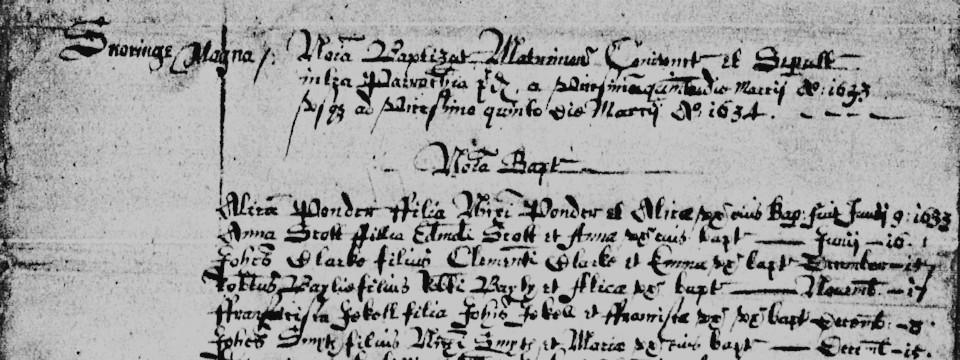 Snoringe Magna /. Noīa Baptizat Matrimon Coniunct et Sepult
infra Parrochia a vicesimo quinto die Martij Ao: 1633
vsqz ad vicesimo quinto die Martij Ao: 1634.
Noīa Bapt
Alicia Ponder ffilia Ponder et Alicæ vx eius Bap: fuit Junij 9: 1633
Anna Scott ffilia Edmdi Scott et Annæ vx eius bapt — Junij — 16
Johēs Clarke filius Clementi Clarke et Emma vx bapt December — 15
Robtus Baylie filius Robti Bayly et Alica vx bapt — Novemb. — 17
ffrancisca Jekell filia Johis Jekell et ffrancisca vx bapt Decemb: — 8
Johēs Smyth filius Smyth et Maria vx eius bapt — Decemb — 15